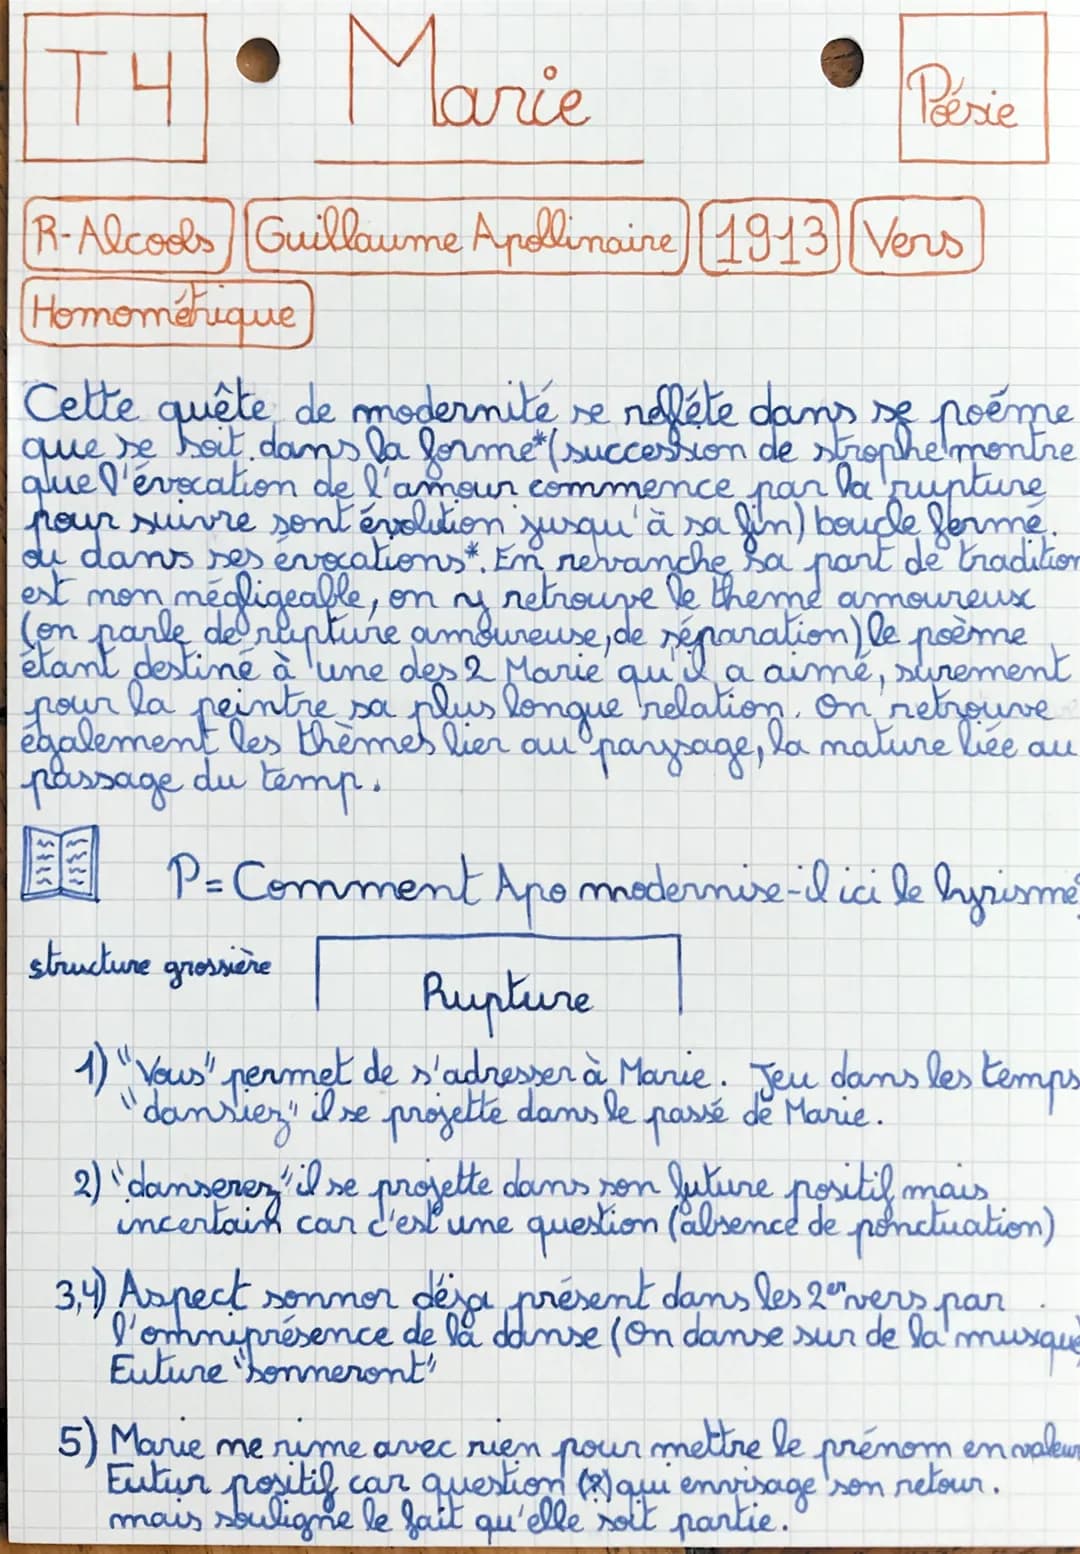 T4
Marie
Poésie
R-Alcools
Guillaume Apollinaire
1913
Vers
Homométrique
Cette quête de modernité se refléte dans se poéme
que se soit dans la forme* (succession de strophe montre
que l'évocation de l'amour commence par la rupture
pour suivre sont évolution jusqu'à sa fin) boucle fermé.
ou dans ses évocations*. En revanche sa part de tradition
est non négligeable, on y retrouve le theme amoureux
(on parle de rupture amoureuse, de séparation) le poème
étant destiné à une des 2 Marie qu'il a aimé, surement
pour la peintre sa plus longue relation. On retrouve
également les thèmes lier au paysage, la nature liée au
passage du temp.
P=Comment Apo modernise-il ici le lyrisme?
structure grossière
Rupture
1) "Vous" permet de s'adresser à Marie. Jeu dans les temps
"dansiez" il se projette dans le passé de Marie.
2) "danserez" il se projette dans son future positif mais
incertain car c'est une question (absence de ponctuation)
3,4) Aspect sonnor déja présent dans les 2er vers par
l'omniprésence de la danse (On danse sur de la musque)
Future "sonneront"
5) Marie ne rime avec rien pour mettre le prénom en valeur
Futur positif car question (?) qui envisage son retour.
mais souligne le fait qu'elle soit partie.